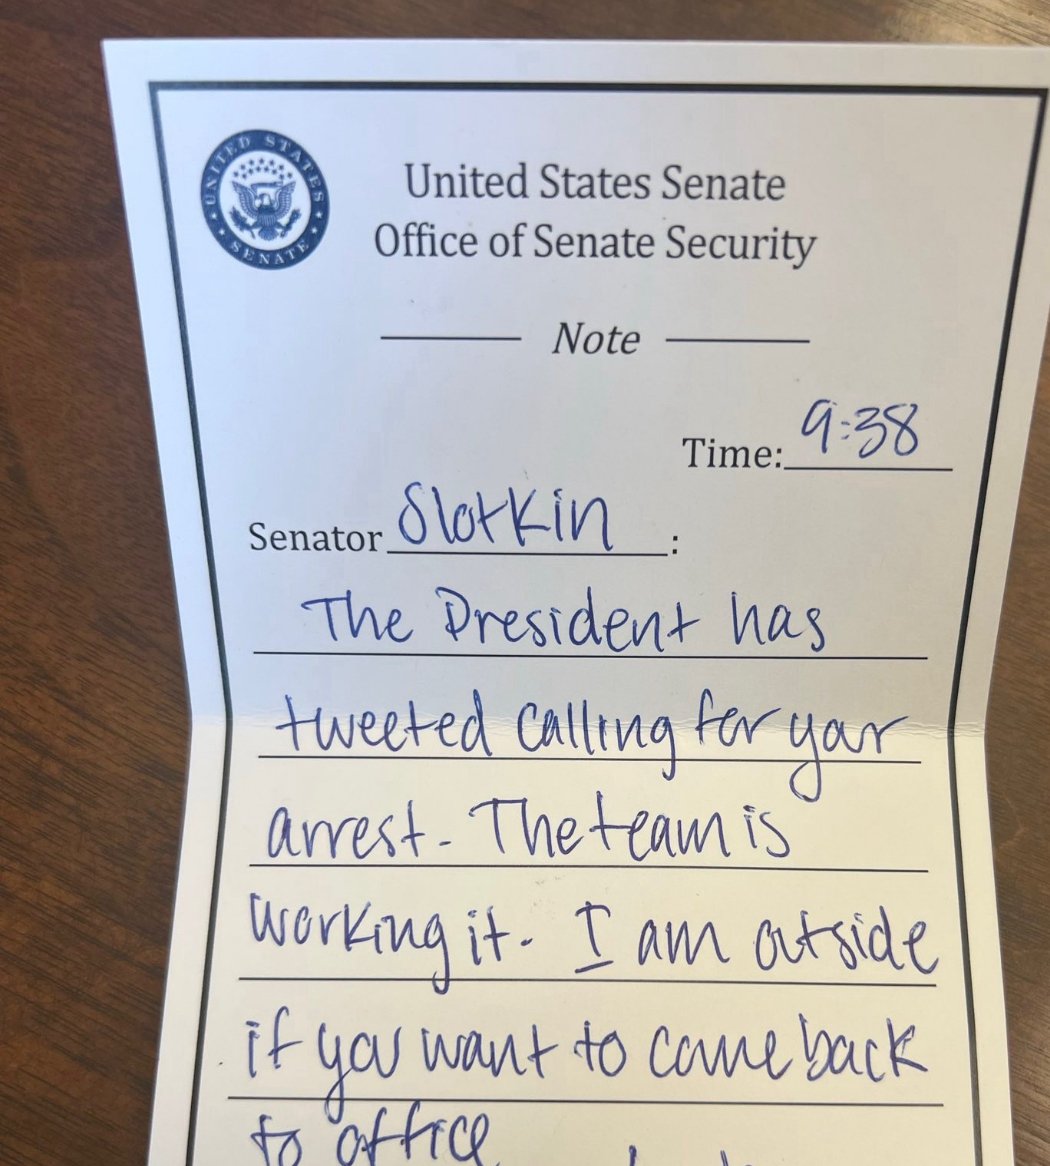 UNITED STATES
SENATE
United States Senate
Office of Senate Security
Note
Time: 9:38
Senator Slotkin :
The President has
tweeted calling for your
arrest. The team is
working it. I am outside
if you want to come back
to office